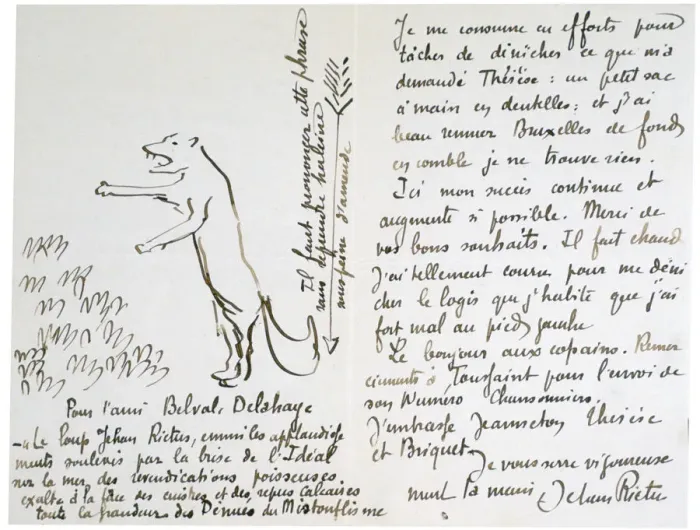 Il faut prononcer cette phrase
sans reprendre haleine
sous peine d'amende
Pour l'ami Belval-Delahaye
— "Le Loup Jehan Rictus, emmi les applaudisse
ments soulevés par la brise de l'Idéal
sur la mer des revendications poisseuses,
exalte à la face des cuistres et des repus calcaires
toute la grandeur des Dénués du Mistouflisme
Je me consume en efforts pour
tâcher de dénicher ce que m'a
demandé Thérèse : un petit sac
à main en dentelles ; et j'ai
beau remuer Bruxelles de fond
en comble je ne trouve rien.
Ici mon succès continue et
augmente si possible. Merci de
vos bons souhaits. Il fait chaud
J'ai tellement couru pour me déni
cher le logis que j'habite que j'ai
fort mal au pied gauche
Le bonjour aux copains. Remer
ciements à Toussaint pour l'envoi de
son Numéro Chansonniers.
J'embrasse Jeanneton Thérèse
et Briquet
Je vous serre vigoureuse
ment la main Jehan Rictus